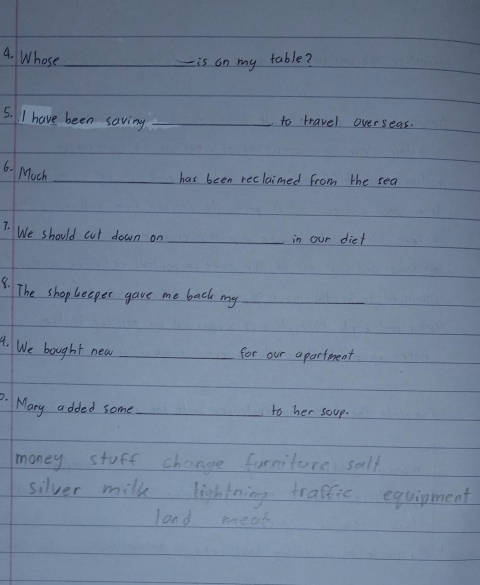 4. Whose ____________ is on my table?
5. I have been saving ____________ to travel overseas.
6. Much ____________ has been reclaimed from the sea
7. We should cut down on ____________ in our diet
8. The shopkeeper gave me back my ____________
9. We bought new ____________ for our apartment
0. Mary added some ____________ to her soup.
money stuff change furniture salt
silver milk lightning traffic equipment
land meat